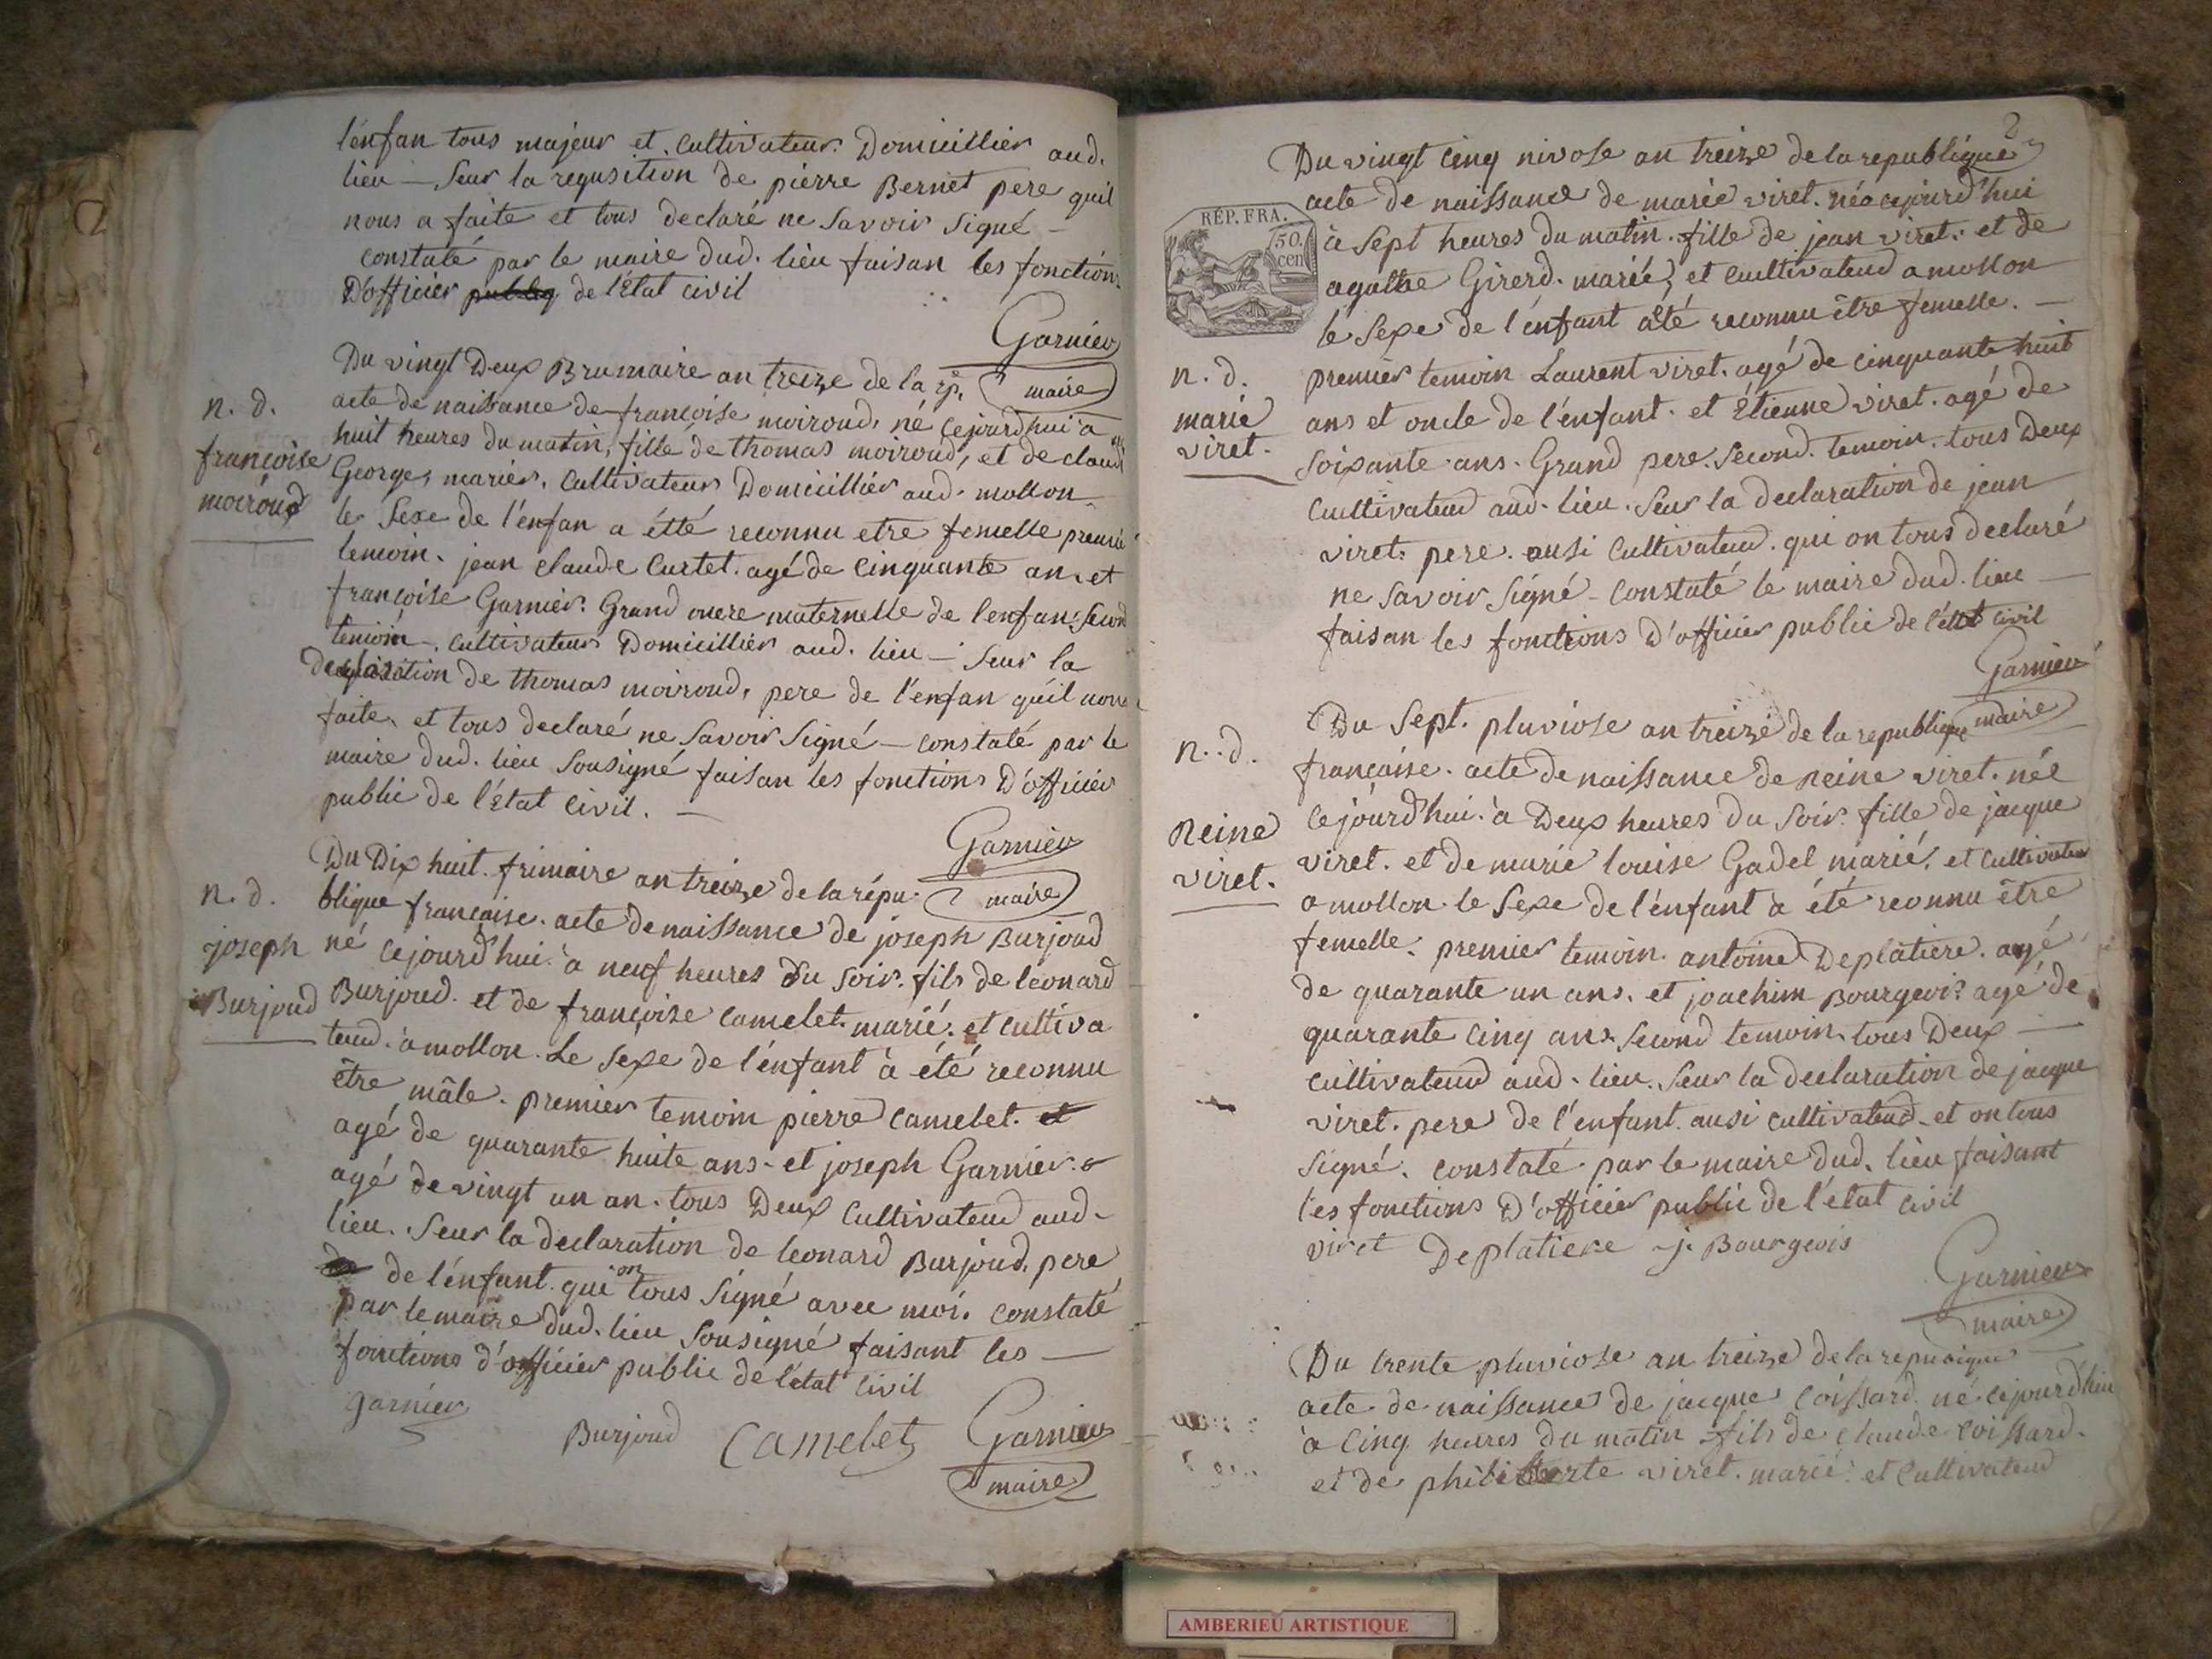 l'énfan tous majeur et. Cultivateur. Domicillier aud.
lieu — Seur la requsition de pierre Bernet pere quil
nous a faite et tous declaré ne Savoir Signé —
constaté par le maire dud. lieu faisan les fonctions
D'officier publiq de l'Etat civil
Garnier
maire
n. d.
françoise
moiroud
Du vingt Deux Brumaire an treize de la rp.
acte de naissance de françoise moiroud, né cejourdhui à
huit heures du matin, fille de thomas moiroud, et de claudi
George, mariés, Cultivateur Domicillier aud. mollon
le Sexe de l'enfan a étté reconnu etre femelle premié
temoin. jean claude Curtet. agé de Cinquante an. et
françoise Garnier. Grand mere maternelle de l'enfan. Secon
temoin. Cultivateur Domicillier aud. lieu — Seur la
de thomas moiroud, pere de l'enfan quil nous
faite, et tous declaré ne Savoir Signé — constaté par le
maire dud. lieu Sousigné faisan les fonctions D'officier
public de l'Etat Civil. —
Garnier
maire
n. d.
joseph
Burjoud
Du Dix huit. frimaire an treize de la répu
blique française. acte de naissance de joseph Burjoud
né cejourd'hui. à neuf heures du Soir. fils de leonard
Burjoud. et de françoise camelet. marié. et cultiva
teud. à mollon. Le Sexe de l'énfant à été reconnu
être mâle. premier temoin pierre camelet. et
agé de quarante huite ans. et joseph Garnier.
agé de vingt un an. tous Deux Cultivateud aud.
lieu. Seur la declaration de leonard Burjoud. pere
de l'énfant. qui on tous Signé avec moi. constaté
par le maire dud. lieu Sousigné faisant les —
fonctions d'officier public de l'état Civil
garnier
Burjoud Camelet Garnier
maire
2
RÉP. FRA.
50.
cen
Du vingt cinq nivose an treize de la republique
acte de naissance de marie viret. née cejourd'hui
à Sept heures du matin. fille de jean viret. et de
agathe Girerd. marié, et cultivateud a mollon
le Sexe de l'énfant àété reconnu être femelle. —
n. d.
marie
viret.
premier temoin Laurent viret. agé de cinquante huit
ans et oncle de l'énfant. et Étienne viret. agé de
Soixante ans. Grand pere. Second. temoin. tous Deux
Cultivateud aud. lieu. Seur la declaration de jean
viret. pere. ausi Cultivateud. qui on tous declaré
ne Savoir Signé — Constaté le maire dud. lieu —
faisan les fonctions D'officier public de l'état Civil
Garnier
maire
n. d.
Reine
viret.
Du Sept. pluviose an treize de la republique
française. acte de naissance de Reine viret. née
cejourd'hui. à Deux heures du Soir. fille de jacque
viret. et de marie louise Gadel marié. et Cultivateur
a mollon. le Sexe de l'énfant à été reonnu être
femelle. premier temoin. antoine Deplatiere. agé
de quarante un ans. et joachim Bourgeois agé de
quarante Cinq ans. Second temoin. tous Deux —
Cultivateud aud. lieu. Seur la declaration de jacque
viret. pere de l'enfant. ausi cultivateud. et on tous
Signé. constaté. par le maire dud. lieu faisant
les fonctions D'officier public de l'état Civil
viret Deplatiere j. Bourgeois
Garnier
maire
Du trente pluviose an treize de la republique
acte de naissance de jacque Coissard. né. cejourd'hui
à Cinq heures du matin. fils de Claude Coissard.
et de philiberte viret. marié. et Cultivateud
AMBERIEU ARTISTIQUE